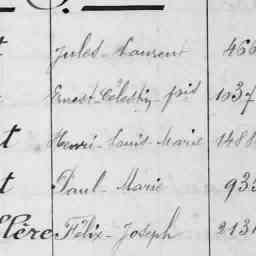 t Jules-Laurent 466
Ernest-Célestin-pis 1037
t Henri-Louis-Marie 1488
t Paul-Marie 933
llère Félix-Joseph 2131